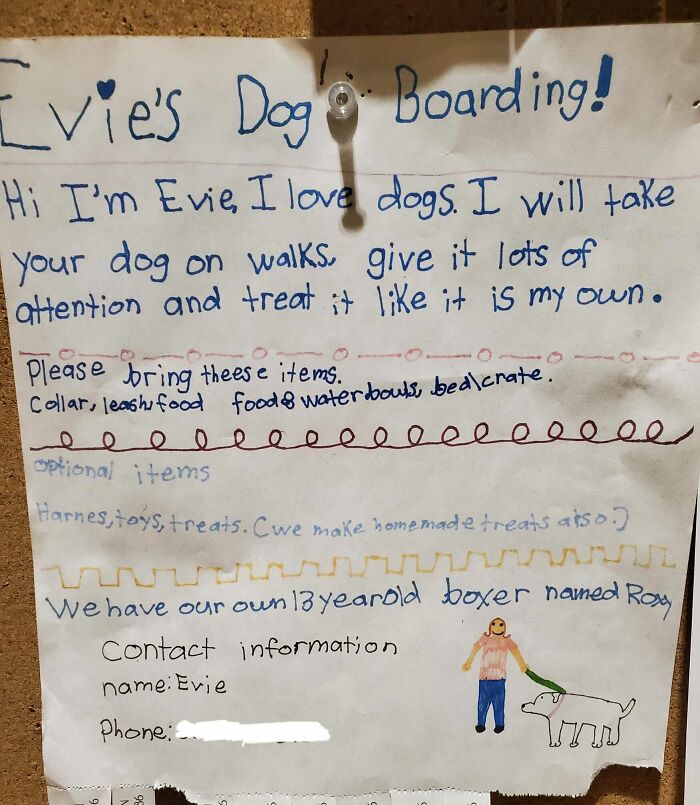 Evie's Dog Boarding!
Hi I'm Evie, I love dogs. I will take
your dog on walks, give it lots of
attention and treat it like it is my own.
Please bring theese items.
Collar, leash, food food & water bowls, bed\crate.
optional items
Harnes, toys, treats. (we make homemade treats also.)
We have our own 13 year old boxer named Roxy
Contact information
name: Evie
Phone: